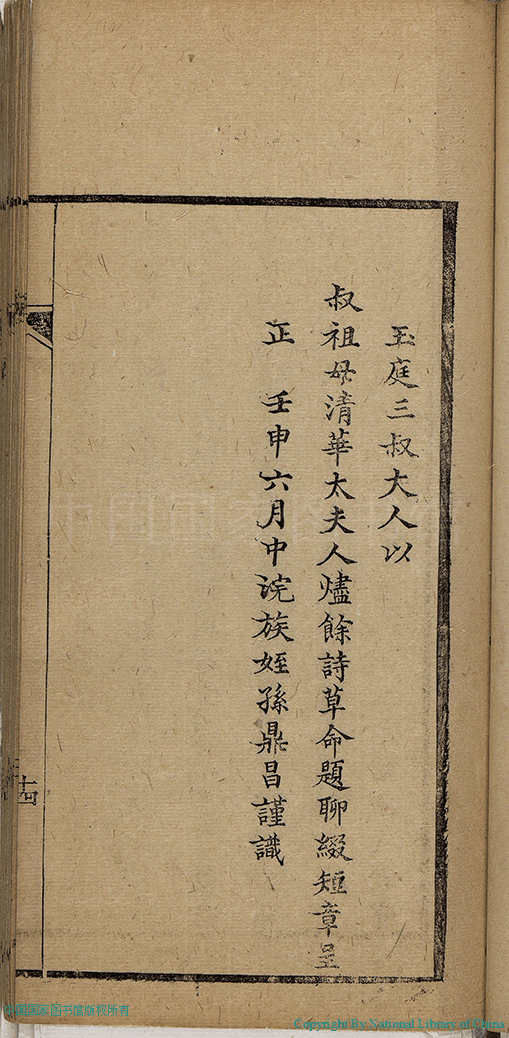 玉庭三叔大人以
叔祖母清華太夫人燼餘詩草命題聊綴短章呈
正　壬申六月中浣族姪孫鼎昌謹識
十四
中国国家图书馆版权所有
Copyright By National Library of China